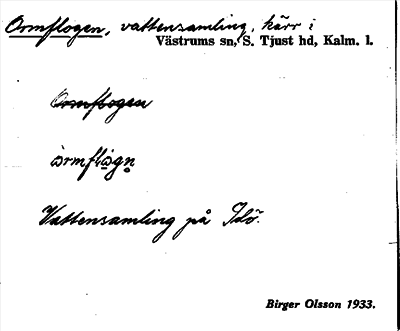 Ormflogen, vattensamling, kärr i
Västrums sn, S. Tjust hd, Kalm. l.
Ormflogen
Vattensamling på Idö.
Birger Olsson 1933.